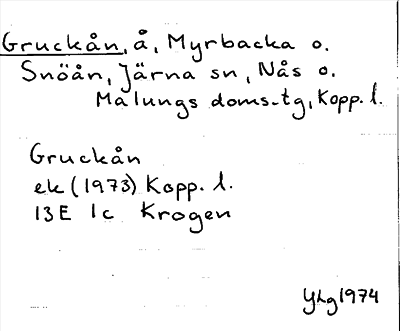 Gruckån, å, Myrbacka o.
Snöån, Järna sn, Nås o.
Malungs doms.tg, Kopp. l.
Gruckån
ek (1973) Kopp. l.
13E 1c Krogen
YLg 1974